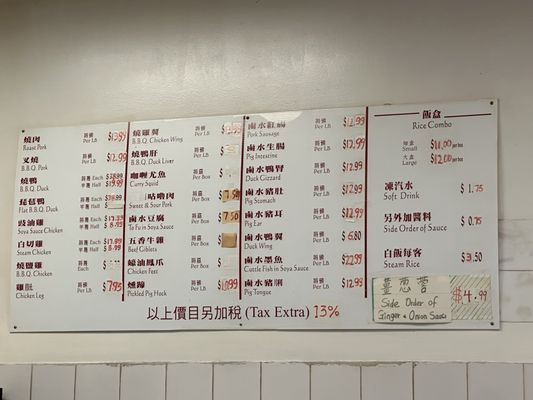 燒肉 每磅 $13.99
Roast Pork Per LB
叉燒 每磅 $12.99
B.B.Q. Pork Per LB
燒鴨 每隻 Each
B.B.Q. Duck 半隻 Half $19.99
琵琶鴨 每隻 Each
Flat B.B.Q. Duck 半隻 Half
豉油雞 每隻 Each $17.99
Soya Sauce Chicken 半隻 Half $8.99
白切雞 每隻 Each $17.99
Steam Chicken 半隻 Half $8.99
燒鹽雞
B.B.Q. Chicken Each
雞肶 每磅 $7.95
Chicken Leg Per LB
燒雞翼 每磅
B.B.Q. Chicken Wing Per LB
燒鴨肝 每磅
B.B.Q. Duck Liver Per LB
咖喱魷魚 每磅
Curry Squid Per LB
咕嚕肉 每盒 7.50
Sweet & Sour Pork Per Box
鹵水豆腐 每盒 $7.50
To Fu in Soya Sauce Per Box
五香牛雜 每盒
Beef Giblets Per Box
蠔油鳳爪 每盒
Chicken Feet Per Box
燻蹄 每磅 $10.99
Pickled Pig Hock Per LB
鹵水紅腸 每磅 $11.99
Pork Sausage Per LB
鹵水生腸 每磅 $12.99
Pig Intestine Per LB
鹵水鴨腎 每磅 $12.99
Duck Gizzard Per LB
鹵水豬肚 每磅 $12.99
Pig Stomach Per LB
鹵水豬耳 每磅 $12.99
Pig Ear Per LB
鹵水鴨翼 每磅 $6.80
Duck Wing Per LB
鹵水墨魚 每磅 $22.99
Cuttle Fish in Soya Sauce Per LB
鹵水豬脷 每磅 $12.99
Pig Tongue Per LB
飯盒
Rice Combo
細盒
Small $11.00 per box
大盒
Large $12.00 per box
凍汽水
Soft Drink $1.75
另外加醬料
Side Order of Sauce $0.75
白飯每客
Steam Rice $3.50
薑葱蓉
Side Order of
Ginger & Onion Sauce $4.99
以上價目另加稅 (Tax Extra) 13%